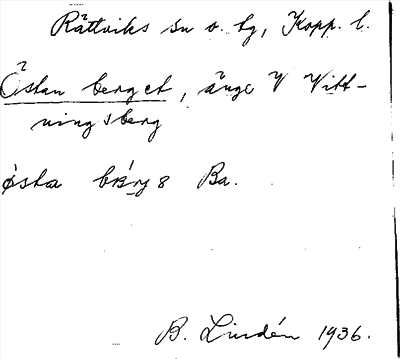 Rättviks sn o. tg, Kopp. l.
Östanberget, änge V Vitt-
ningsberg
Ba.
B. Lindén 1936.